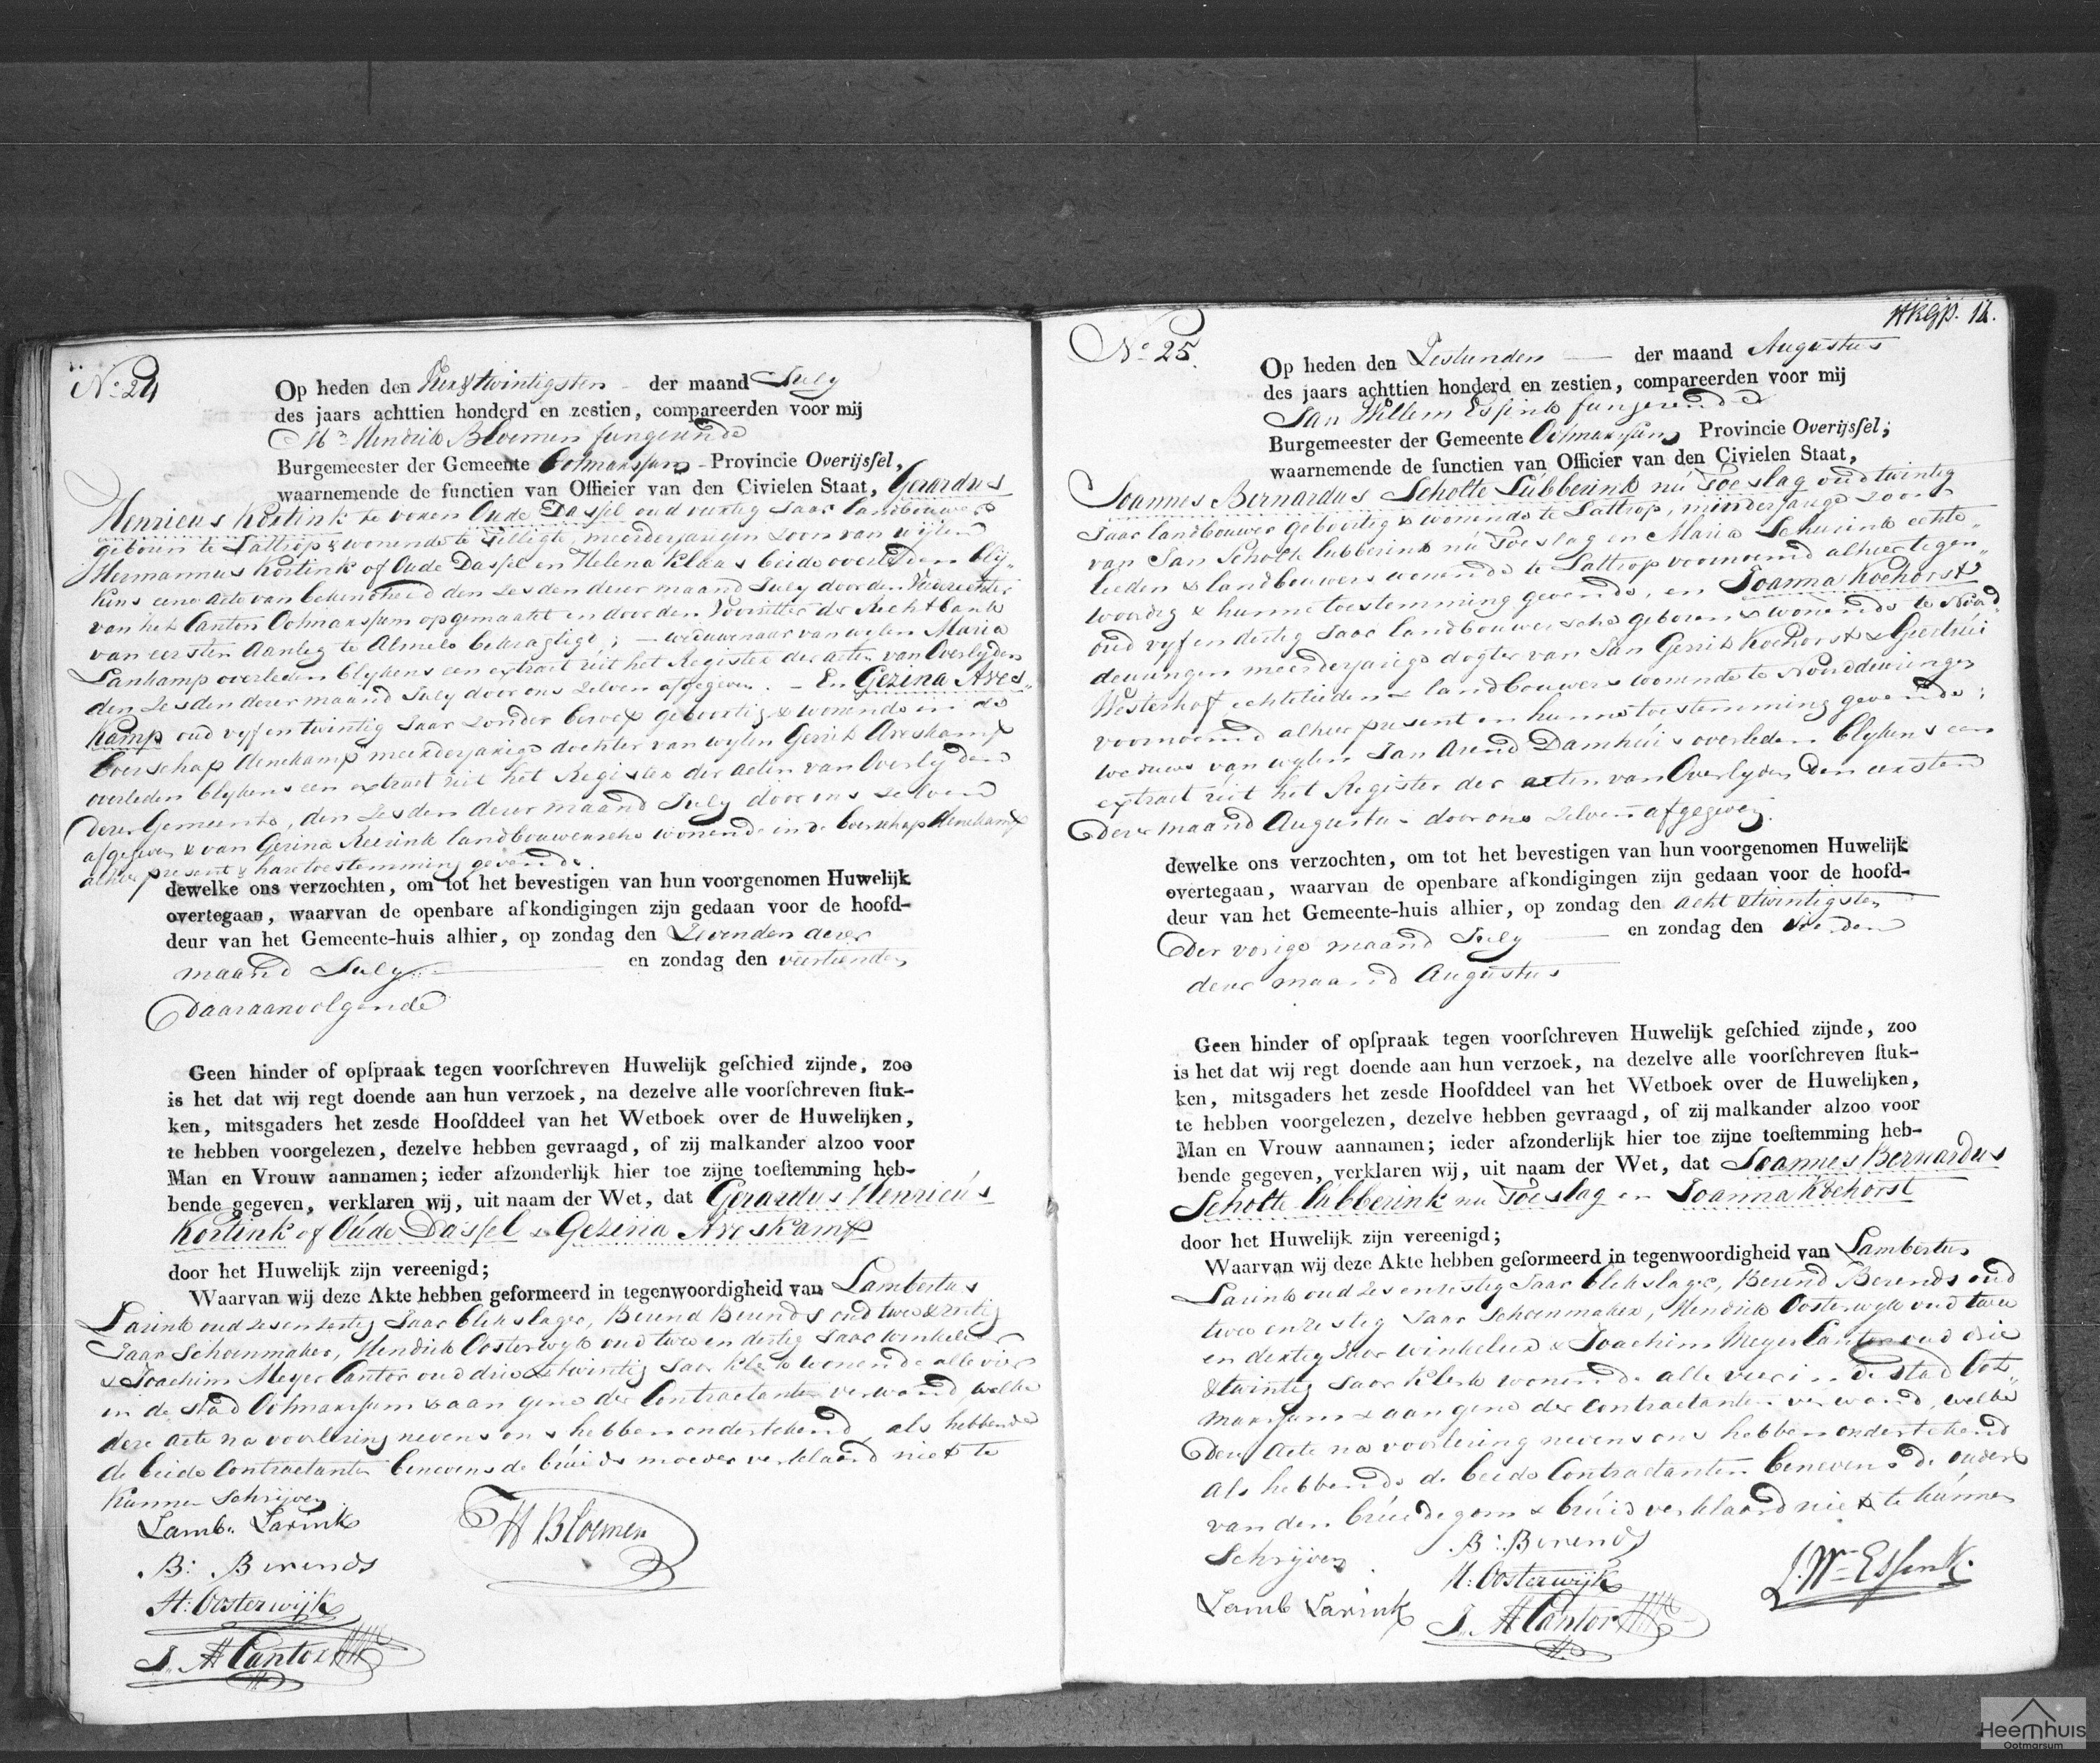 No. 24
Op heden den Vier & twintigsten - der maand July
des jaars achttien honderd en zestien, compareerden voor mij
Mr. Hendrik Bloemen fungerende
Burgemeester der Gemeente Ootmarssum - Provincie Overijsſel,
waarnemende de functien van Officier van den Civielen Staat, Gerardus
Henricus Kortink te voren Oude Dassel oud veertig Jaar landbouwer
geboren te Lattrop & wonende te Tilligte, meerderjarigen zoon van wijlen
Hermannus Kortink of Oude Dassel en Helena Klaas beide overleden bly„
kens eene acte van bekendheid den zesden dezer maand July door den Vrederechter
van het Canton Ootmarssum opgemaakt en door den Voorzitter der Rechtbank
van eersten Aanleg te Almelo bekragtigd; - weduwenaar van wylen Maria
Lankamp overleden blykens een extract uit het Register der acten van Overlyden
den zesden dezer maand July door ons zelven afgegeven. - En Gezina Ares„
kamp oud vyf en twintig Jaar zonder beroep geboortig & wonende in de
boerschap Henekamp meerderjarige dochter van wylen Gerrit Areskamp
overleden blykens een extract uit het Register der acten van Overlyden
dezer Gemeente, den zesden dezer maand July door ons zelven
afgegeven & van Gezina Reerink landbouwersche wonende in de boerschap Henekamp
alhier present & hare toestemming gevende.
dewelke ons verzochten, om tot het bevestigen van hun voorgenomen Huwelijk
overtegaan, waarvan de openbare afkondigingen zijn gedaan voor de hoofd-
deur van het Gemeente-huis alhier, op zondag den Zevenden dezer
maand July en zondag den veertienden
daaraanvolgende
Geen hinder of opſpraak tegen voorſchreven Huwelijk geſchied zijnde, zoo
is het dat wij regt doende aan hun verzoek, na dezelve alle voorſchreven ſtuk-
ken, mitsgaders het zesde Hoofddeel van het Wetboek over de Huwelijken,
te hebben voorgelezen, dezelve hebben gevraagd, of zij malkander alzoo voor
Man en Vrouw aannamen; ieder afzonderlijk hier toe zijne toeſtemming heb-
bende gegeven, verklaren wij, uit naam der Wet, dat Gerardus Henricus
Kortink of Oude Dassel & Gezina Areskamp
door het Huwelijk zijn vereenigd;
Waarvan wij deze Akte hebben geformeerd in tegenwoordigheid van Lambertus
Larink oud zes en zestig Jaar blekslager, Berend Berends oud twee & zestig
Jaar Schoenmaker, Hendrik Oosterwyk oud twee en dertig Jaar winkelier
& Joachim Meyer Cantor oud drie & twintig Jaar klerk wonende alle vier
in de stad Ootmarssum & aan geene der Contractanten verwand, welke
deze acte na voorlezing nevens ons hebben ondertekend, als hebbende
de beide Contractanten benevens de bruids moeder verklaard niet te
kunnen Schrijven.
Lamb. Larink
B: Berends
H: Oosterwijk
J. M Cantor
H Bloemen
HKGp. 12.
No. 25.
Op heden den Zestienden der maand Augustus
des jaars achttien honderd en zestien, compareerden voor mij
Jan Willem Essink fungerende
Burgemeester der Gemeente Ootmarssum, Provincie Overijsſel;
waarnemende de functien van Officier van den Civielen Staat,
Joannes Bernardus Scholte Lubberink nu Toeslag oud twintig
Jaar landbouwer geboortig & wonende te Lattrop, minderjarige zoon
van Jan Scholte lubberink nu Toeslag en Maria Schurink echte„
lieden & landbouwers wonende te Lattrop voornoemd alhier tegen„
woordig & hunne toestemming gevende, en Joanna Koehorst
oud vyf en dertig Jaar landbouwersche geboren & wonende te Noord
deuringen meerderjarige dogter van Jan Gerrit Koehorst & Geertrui
Westerhof echtelieden & landbouwers wonende te Noorddeuringen
voornoemd alhier present en hunne toestemming gevende;
weduwe van wylen Jan Arend Damhuis overleden blykens een
extract uit het Register der acten van Overlyden den eersten
dezer maand Augustus door ons zelven afgegeven.
dewelke ons verzochten, om tot het bevestigen van hun voorgenomen Huwelijk
overtegaan, waarvan de openbare afkondigingen zijn gedaan voor de hoofd-
deur van het Gemeente-huis alhier, op zondag den acht & twintigsten
der vorige maand July en zondag den vierden
dezer maand Augustus
Geen hinder of opſpraak tegen voorſchreven Huwelijk geſchied zijnde, zoo
is het dat wij regt doende aan hun verzoek, na dezelve alle voorſchreven ſtuk-
ken, mitsgaders het zesde Hoofddeel van het Wetboek over de Huwelijken,
te hebben voorgelezen, dezelve hebben gevraagd, of zij malkander alzoo voor
Man en Vrouw aannamen; ieder afzonderlijk hier toe zijne toeſtemming heb-
bende gegeven, verklaren wij, uit naam der Wet, dat Joannes Bernardus
Scholte lubberink nu Toeslag en Joanna Koehorst
door het Huwelijk zijn vereenigd;
Waarvan wij deze Akte hebben geformeerd in tegenwoordigheid van Lambertus
Larink oud zes en zestig Jaar blekslager, Berend Berends oud
twee en zestig Jaar Schoenmaker, Hendrik Oosterwyk oud twee
en dertig Jaar winkelier & Joachim Meyer Cantor oud drie
& twintig Jaar klerk wonende alle vier in de stad Oot„
marssum & aan geene der contractanten verwand, welke
deze Acte na voorlezing nevens ons hebben ondertekend
als hebbende de beide Contractanten benevens de ouders
van den bruidegom & bruid verklaard niet te kunnen
Schrijven.
B: Berends
H: Oosterwijk
Lamb Larink
J. M Cantor
J. Wm Essink.
Heemhuis
Ootmarsum